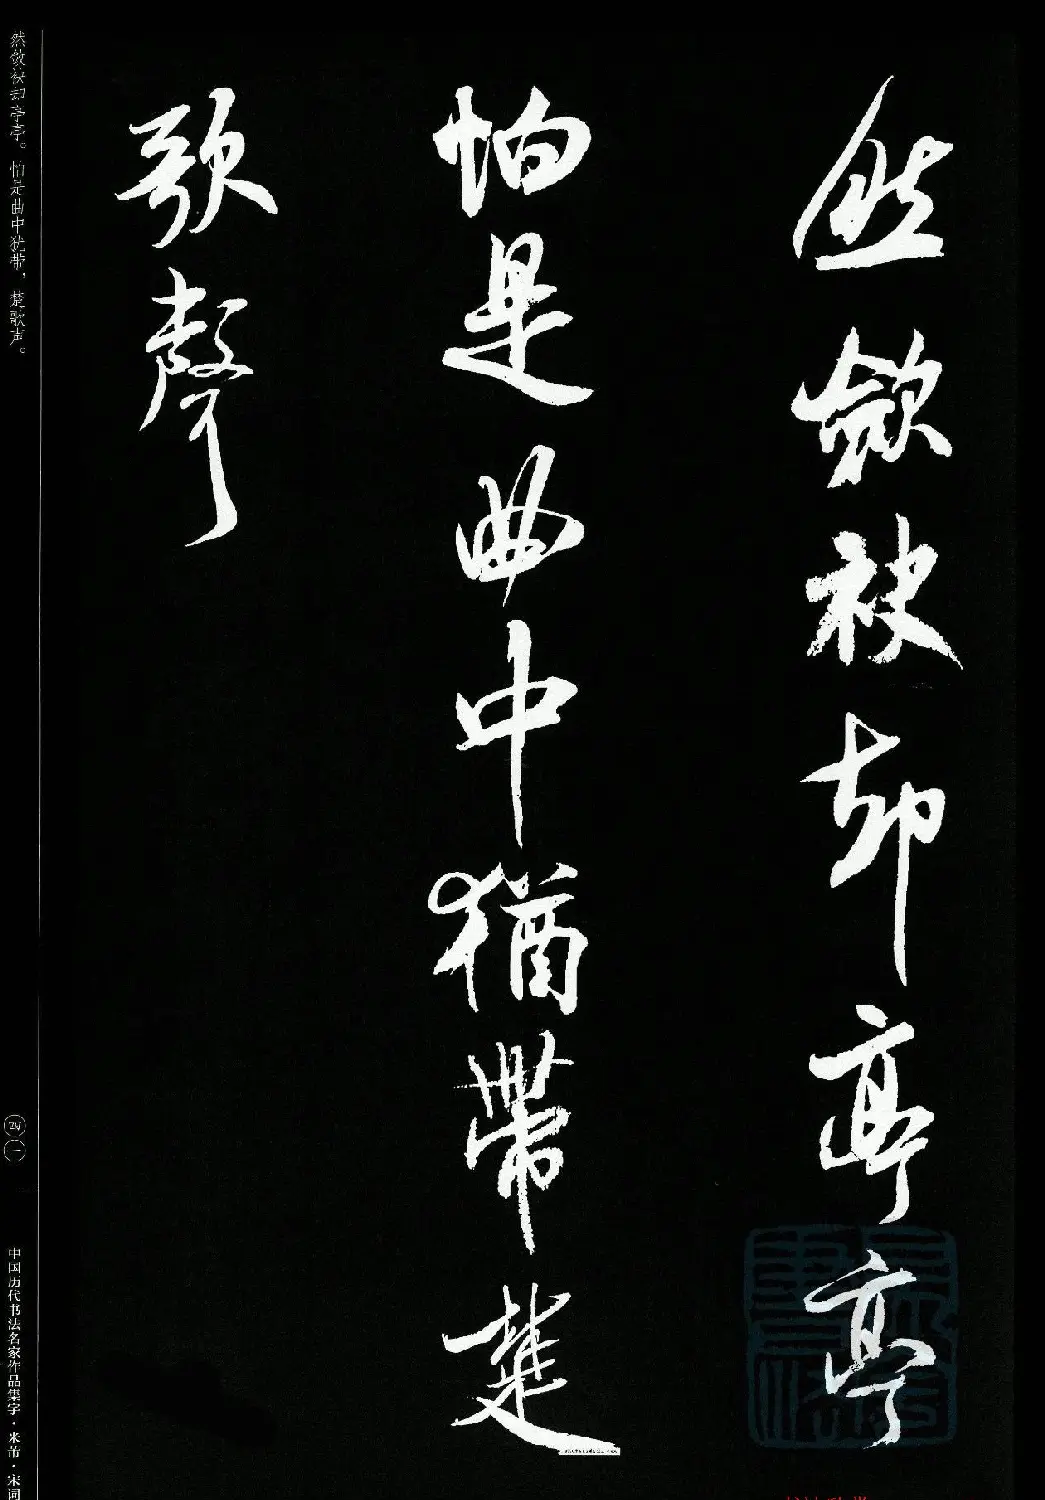 然斂袂却亭亭
怕是曲中猶帶楚
歌聲
然敛袂却亭亭。怕是曲中犹带，楚歌声。
四一
中国历代书法名家作品集字·米芾·宋词